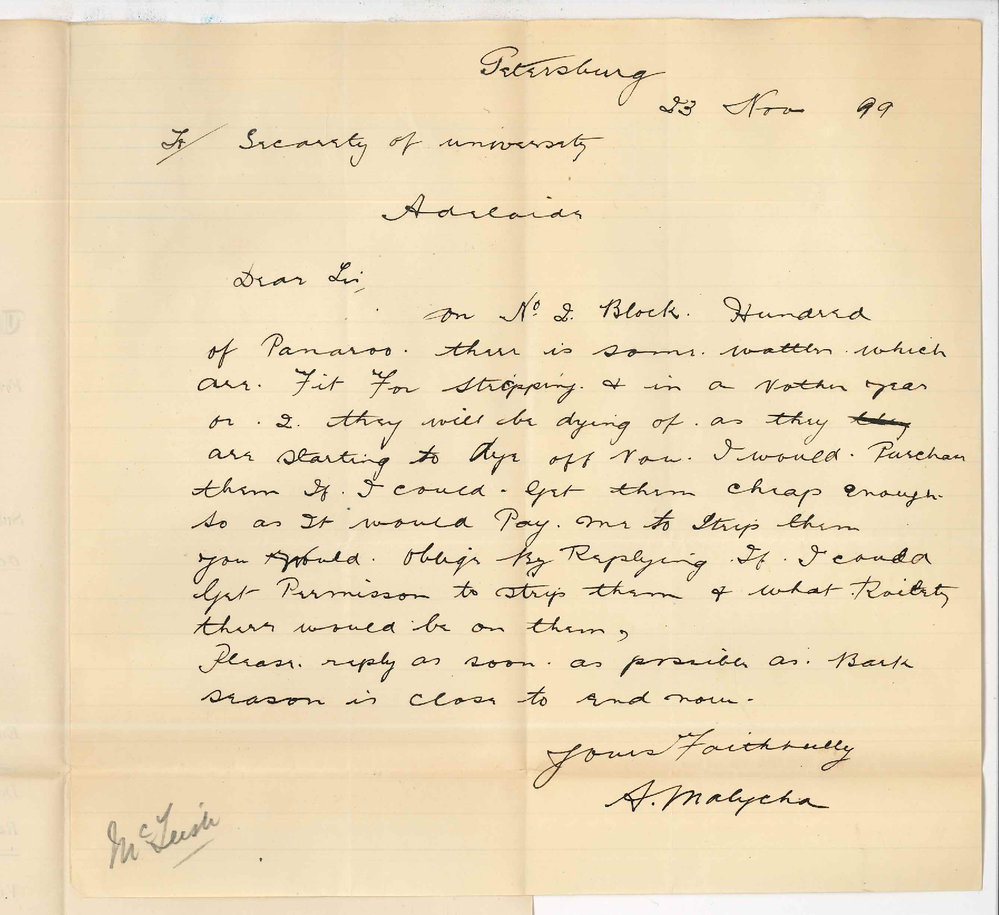 Petersburg
23 Nov 99
To/ Secaraty of university
Adelaide
Dear Sir,
on No. 2. Block. Hundred
of Panaroo. there is some. watten. which
are. Fit For stripping. & in a nother year
or. 2. they will be dying of. as they they
are starting to dye off Now. I would. Purchase
them If. I could. Get them cheap enough.
so as It would Pay. me to Strip them
you would. oblige By Replying If. I could
Get Permisson to strip them & what Roilety
there would be on them,
Please. reply as soon. as possible as. Bark
season is close to end now.
Yours Faithfully
A. Malycha
McLeish